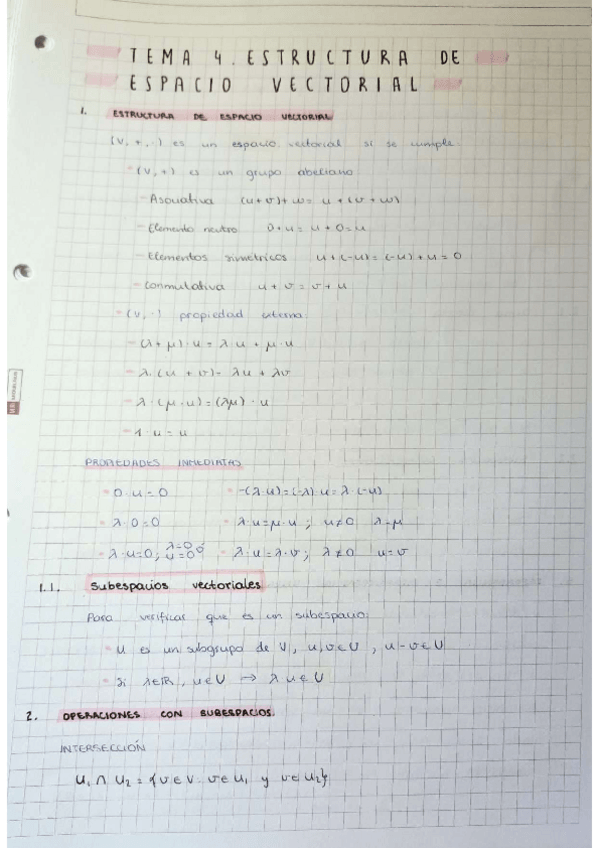 TEMA 4. ESTRUCTURA DE
ESPACIO VECTORIAL
1. ESTRUCTURA DE ESPACIO VECTORIAL
(V, +, ·) es un espacio vectorial si se cumple:
(V, +) es un grupo abeliano
- Asociativa (u+v)+w = u+(v+w)
- Elemento neutro 0+u = u+0 = u
- Elementos simétricos u+(-u) = (-u)+u = 0
- Conmutativa u+v = v+u
(V, ·) propiedad externa
- (λ+μ)·u = λu + μ·u
- λ·(u+v) = λu + λv
- λ·(μ·u) = (λμ)·u
- 1·u = u
PROPIEDADES INMEDIATAS
0·u = 0 -(λ·u) = (-λ)·u = λ·(-u)
λ·0 = 0 λ·u = μ·u ; u≠0 λ=μ
λ·u = 0 ; λ=0 ó u=0 λ·u = λ·v ; λ≠0 u=v
1.1. Subespacios vectoriales
Para verificar que es un subespacio:
U es un subgrupo de V, u,v∈U, u-v∈U
Si λ∈ℝ, u∈U → λu∈U
2. OPERACIONES CON SUBESPACIOS
INTERSECCIÓN
U₁ ∩ U₂ = {v∈V: v∈U₁ y v∈U₂}